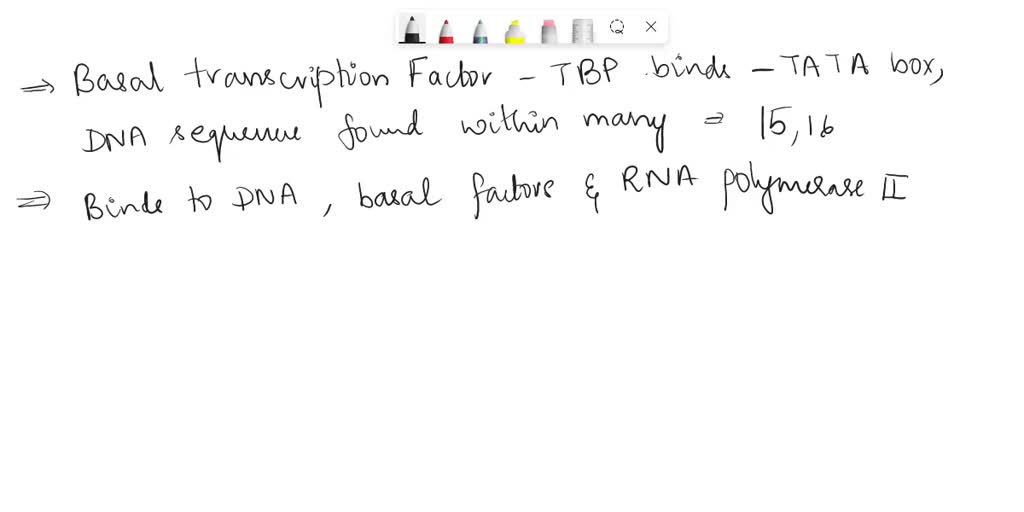 ⇒ Basal transcription Factor - TBP binds - TATA box,
DNA sequence found within many = 15,16
⇒ Binds to DNA, basal factors & RNA polymerase II